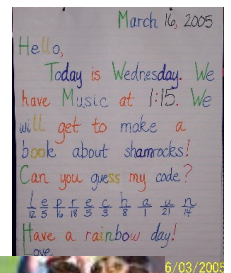 March 16, 2005
Hello,
Today is Wednesday. We
have Music at 1:15. We
will get to make a
book about shamrocks!
Can you guess my code?
l e p r e c h a u n
12 5 16 18 5 3 8 1 21 14
Have a rainbow day!
Love,
6/03/2005